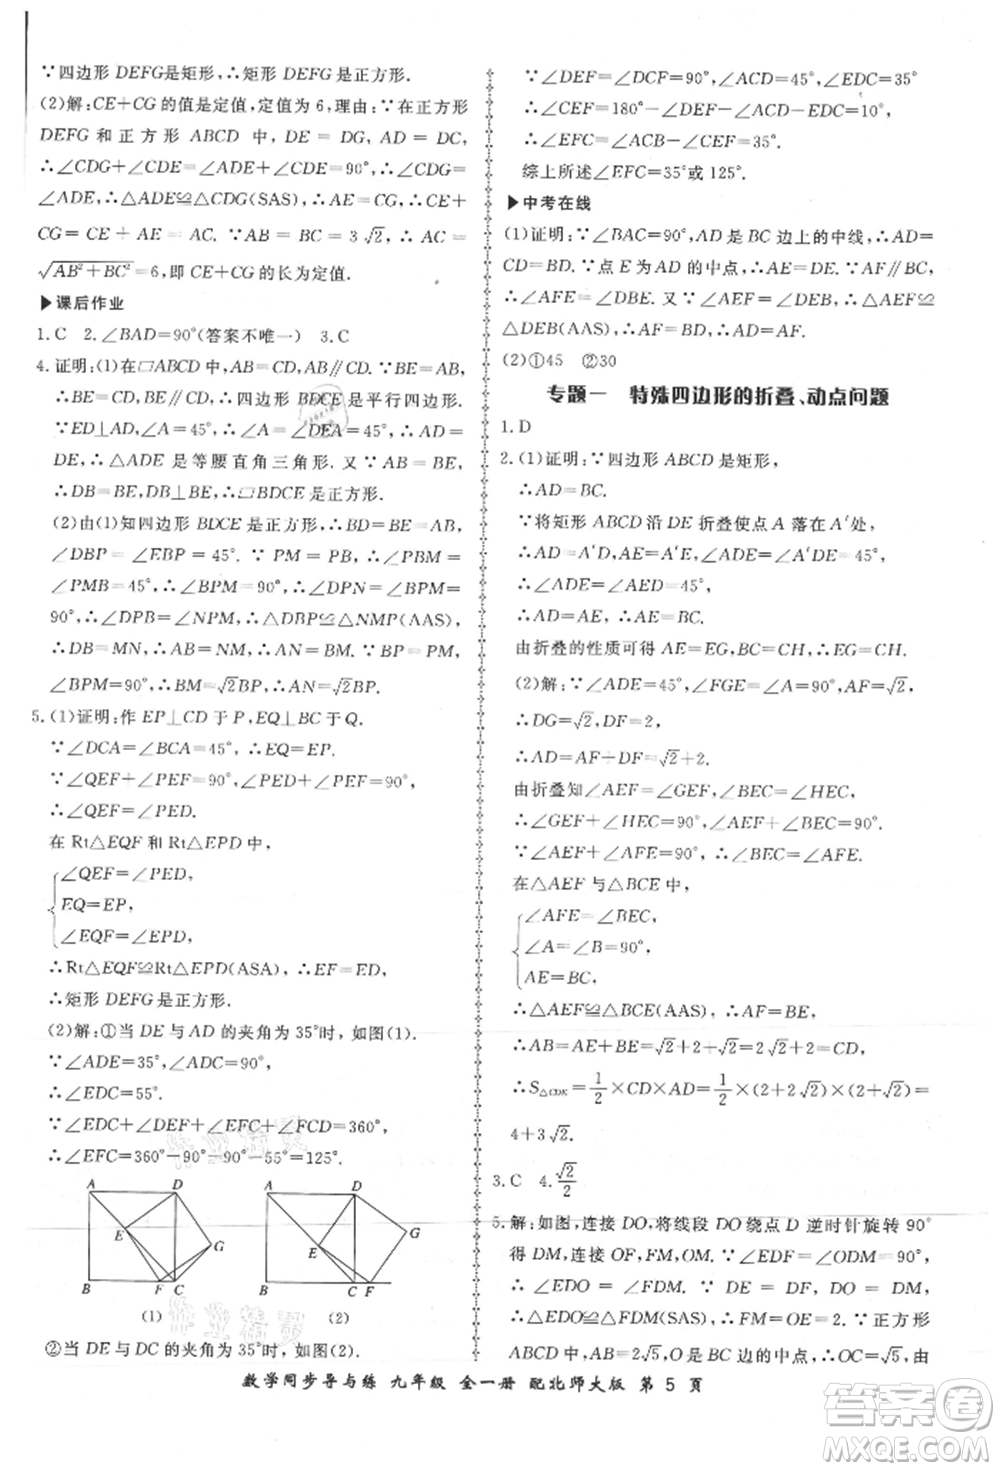 ∵四边形 DEFG是矩形,∴矩形 DEFG 是正方形.
(2)解:CE+CG的值是定值,定值为 6,理由:∵在正方形
DEFG 和正方形 ABCD 中,DE=DG,AD=DC,
∴∠CDG+∠CDE=∠ADE+∠CDE=90°,∴∠CDG=
∠ADE,∴△ADE≌△CDG(SAS),∴AE=CG,∴CE+
CG=CE+AE=AC. ∵BC=3√2,∴CE+CG=AC=
√(AB²+BC²)=6,即 CE+CG 的长为定值.
▶课后作业
1.C 2.∠BAD=90°(答案不唯一) 3.C
4.证明:(1)在▱ABCD 中,AB=CD,AB∥CD.
∵BE=AB,∴BE=CD,∴四边形 BDCE 是平行四边形.
∵ED⊥AD,∠A=45°,∴∠A=∠DEA=45°,∴AD=
DE,∴△ADE 是等腰直角三角形. 又∵AB=BE,
∴DB=BE,DB⊥BE,∴▱BDCE 是正方形.
(2)由(1)知四边形 BDCE 是正方形,∴∠DBE=90°,
∠DBP=∠EBP=45°. ∵PM=PB,∴∠PBM=
∠PMB=45°,∴∠BPM=90°,∴∠DPN=∠BPM=
90°,∴∠DPB=∠NPM,∴△DBP≌△NMP(AAS),
∴DB=MN,∴AB=NM,∴AN=BM. ∵PB=PM,
∠BPM=90°,∴BM=√2BP,∴AN=√2BP.
5.(1)证明:作 EP⊥CD 于 P,EQ⊥BC 于 Q.
∵∠DCA=∠BCA=45°,∴EQ=EP.
∵∠QEF+∠PEF=90°,∠PED+∠PEF=90°,
∴∠QEF=∠PED.
在 Rt△EQF 和 Rt△EPD 中,
∠QEF=∠PED,
EQ=EP,
∠EQF=∠EPD,
∴Rt△EQF≌Rt△EPD(ASA),∴EF=ED,
∴矩形 DEFG 是正方形.
(2)解:①当 DE 与 AD 的夹角为 35°时,如图(1).
∵∠ADE=35°,∠ADC=90°,
∴∠EDC=55°.
∵∠EDC+∠DEF+∠EFC+∠DCF=360°,
∴∠EFC=360°-90°-90°-55°=125°.
A D E G B F C
(1)
A D E G B C F
(2)
②当 DE 与 DC 的夹角为 35°时,如图(2).
∵∠DEF=∠DCF=90°,∠ACD=45°,∠EDC=35°
∴∠CEF=180°-∠DEF-∠ACD-EDC=10°,
∴∠EFC=∠ACB-∠CEF=35°.
综上所述∠EFC=35°或 125°.
▶中考在线
(1)证明:∵∠BAC=90°,AD 是 BC 边上的中线,∴AD=
CD=BD. ∵点 E 为 AD 的中点,∴AE=DE. ∵AF∥BC,
∴∠AFE=∠DBE. ∵∠AEF=∠DEB,∴△AEF≌
△DEB(AAS),∴AF=BD,∴AD=AF.
(2)①45 ②30
专题一 特殊四边形的折叠、动点问题
1.D
2.(1)证明:∵四边形 ABCD 是矩形,
∴AD=BC.
∵将矩形 ABCD 沿 DE 折叠使点 A 落在 A′处,
∴AD=A′D,AE=A′E,∠ADE=∠A′DE=45°,
∴∠ADE=∠AED=45°,
∴AD=AE,∴AE=BC.
由折叠的性质可得 AE=EG,BC=CH,∴EG=CH.
(2)解:∵∠ADE=45°,∠FGE=∠A=90°,AF=√2,
∴DG=√2,DF=2,
∴AD=AF+DF=√2+2.
由折叠知∠AEF=∠GEF,∠BEC=∠HEC,
∴∠GEF+∠HEC=90°,∠AEF+∠BEC=90°.
∵∠AEF+∠AFE=90°,∴∠BEC=∠AFE.
在△AEF 与△BCE 中,
∠AFE=∠BEC,
∠A=∠B=90°,
AE=BC,
∴△AEF≌△BCE(AAS),∴AF=BE,
∴AB=AE+BE=√2+2+√2=2√2+2=CD,
∴S△CDE=1/2×CD×AD=1/2×(2+2√2)×(2+√2)=
4+3√2.
3.C 4.√2/2
5.解:如图,连接 DO,将线段 DO绕点 D 逆时针旋转 90°
得 DM,连接 OF,FM,OM. ∵∠EDF=∠ODM=90°,
∴∠EDO=∠FDM. ∵DE=DF,DO=DM,
∴△EDO≌△FDM(SAS),∴FM=OE=2. ∵正方形
ABCD 中,AB=2√5,O 是 BC 边的中点,∴OC=√5,
数学同步导与练 九年级 全一册 配北师大版 第 5 页
答案圈
MXQE.COM